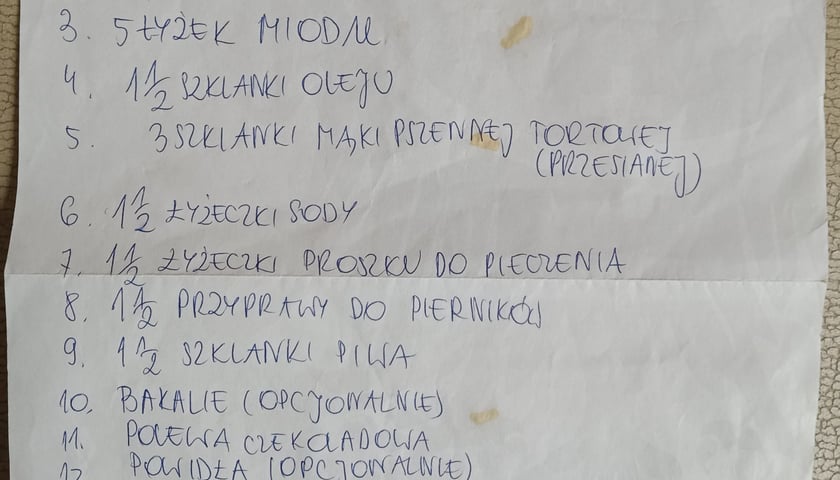 3. 5 ŁYŻEK MIODU
4. 1 1/2 SZKLANKI OLEJU
5. 3 SZKLANKI MĄKI PSZENNEJ TORTOWEJ
(PRZESIANEJ)
6. 1 1/2 ŁYŻECZKI SODY
7. 1 1/2 ŁYŻECZKI PROSZKU DO PIECZENIA
8. 1 1/2 PRZYPRAWY DO PIERNIKÓW
9. 1 1/2 SZKLANKI PIWA
10. BAKALIE (OPCJONALNIE)
11. POLEWA CZEKOLADOWA
12 POWIDŁA (OPCJONALNIE)